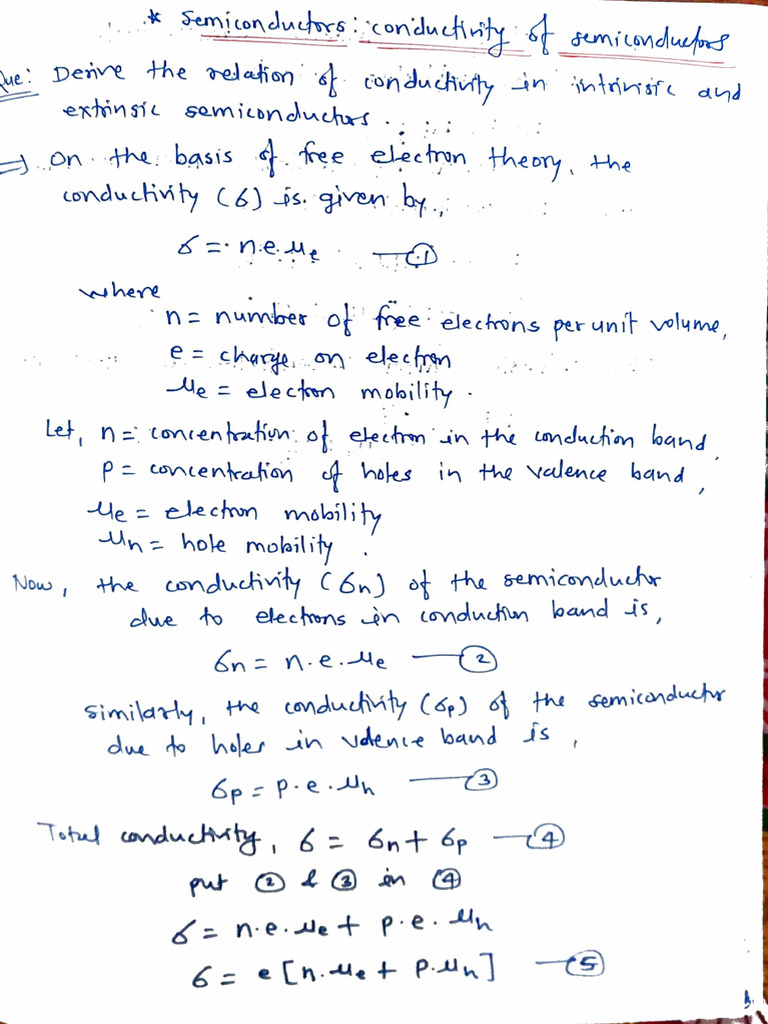 * Semiconductors: conductivity of semiconductors
Que: Derive the relation of conductivity in intrinsic and
extrinsic semiconductors.
⇒ On the basis of free electron theory, the
conductivity (б) is given by,
б = n.e.μe —①
where
n = number of free electrons per unit volume,
e = charge on electron
μe = electron mobility.
Let, n = concentration of electron in the conduction band,
p = concentration of holes in the valence band,
μe = electron mobility
μh = hole mobility.
Now, the conductivity (бn) of the semiconductor
due to electrons in conduction band is,
бn = n.e.μe —②
similarly, the conductivity (бp) of the semiconductor
due to holes in valence band is,
бp = p.e.μh —③
Total conductivity, б = бn + бp —④
put ② & ③ in ④
б = n.e.μe + p.e.μh
б = e[n.μe + p.μh] —⑤